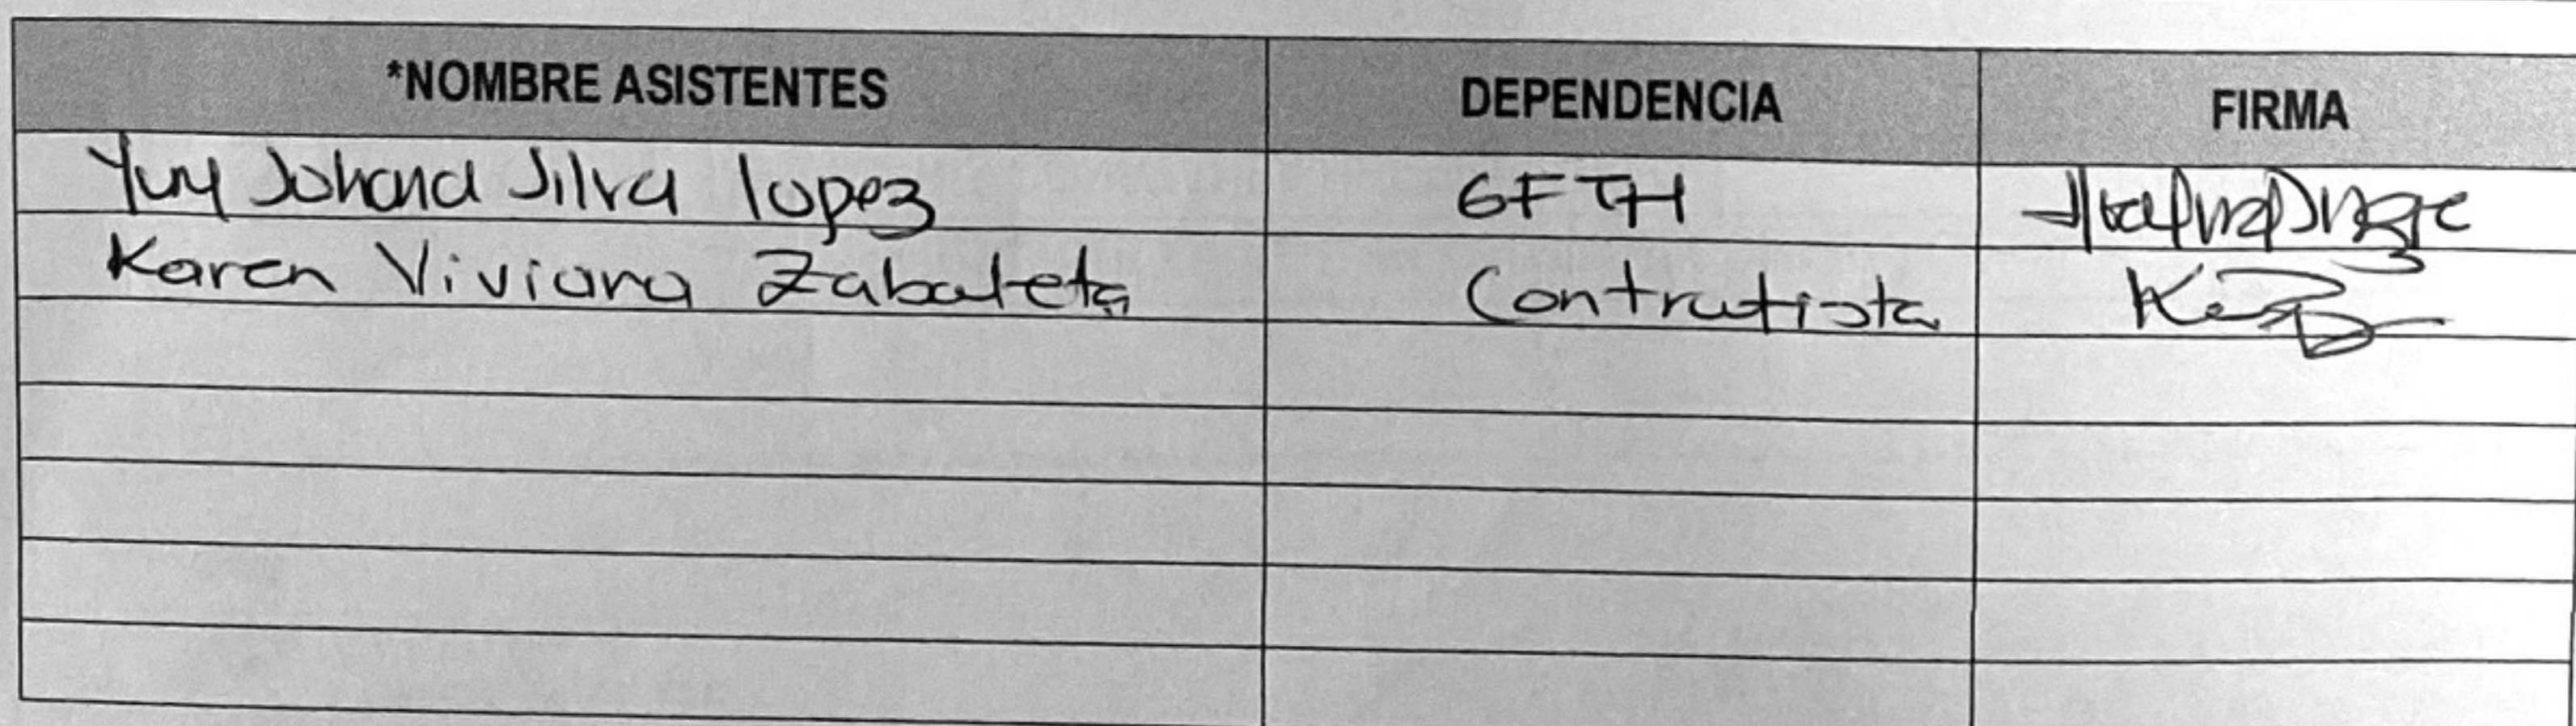 *NOMBRE ASISTENTES DEPENDENCIA FIRMA
Yuy Johana Silva lopez GFTH
Karen Viviana Zabaleta Contratista